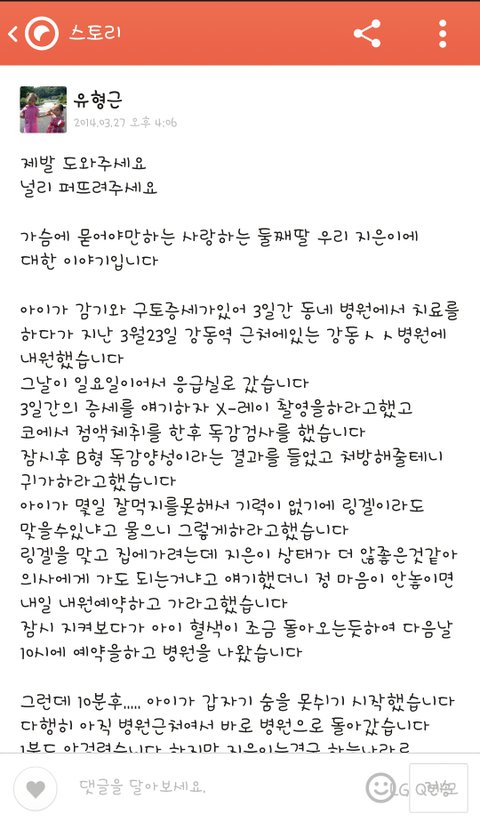 스토리
유형근
2014.03.27 오후 4:06
제발 도와주세요
널리 퍼뜨려주세요
가슴에 묻어야만하는 사랑하는 둘째딸 우리 지은이에
대한 이야기입니다
아이가 감기와 구토증세가있어 3일간 동네 병원에서 치료를
하다가 지난 3월23일 강동역 근처에있는 강동ㅅㅅ병원에
내원했습니다
그날이 일요일이어서 응급실로 갔습니다
3일간의 증세를 얘기하자 X-레이 촬영을하라고했고
코에서 점액체취를 한후 독감검사를 했습니다
잠시후 B형 독감양성이라는 결과를 들었고 처방해줄테니
귀가하라고했습니다
아이가 몇일 잘먹지를못해서 기력이 없기에 링겔이라도
맞을수있냐고 물으니 그렇게하라고했습니다
링겔을 맞고 집에가려는데 지은이 상태가 더 않좋은것같아
의사에게 가도 되는거냐고 얘기했더니 정 마음이 안놓이면
내일 내원예약하고 가라고했습니다
잠시 지켜보다가 아이 혈색이 조금 돌아오는듯하여 다음날
10시에 예약을하고 병원을 나왔습니다
그런데 10분후..... 아이가 갑자기 숨을 못쉬기 시작했습니다
다행히 아직 병원근처여서 바로 병원으로 돌아갔습니다
1분도 안걸렸습니다 하지만 지은이는결국 하늘나라로
댓글을 달아보세요.
LG Q메모